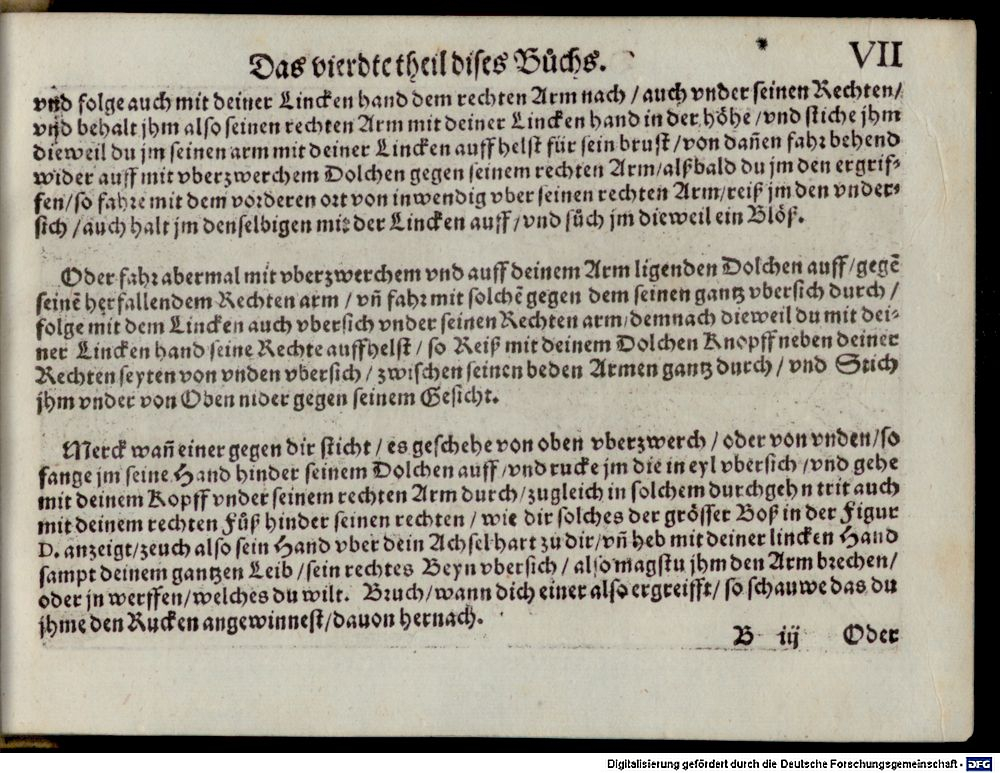 Das vierdte theil dises Bůchs.
VII
vnd folge auch mit deiner Lincken hand dem rechten Arm nach / auch vnder seinen Rechten/
vnd behalt jhm also seinen rechten Arm mit deiner Lincken hand in der höhe / vnd stiche jhm
dieweil du jm seinen arm mit deiner Lincken auff helst für sein brust / von dañen fahr behend
wider auff mit vberzwerchem Dolchen gegen seinem rechten Arm/ alßbald du jm den ergrif-
fen/ so fahre mit dem vorderen ort von inwendig vber seinen rechten Arm/ reiß jm den vnder-
sich / auch halt jm denselbigen mit der Lincken auff / vnd sůch jm dieweil ein Blöß.
Oder fahr abermal mit vberzwerchem vnd auff deinem Arm ligenden Dolchen auff / gegē
seinē herfallendem Rechten arm / vñ fahr mit solchē gegen dem seinen gantz vbersich durch /
folge mit dem Lincken auch vbersich vnder seinen Rechten arm/ demnach dieweil du mit dei-
ner Lincken hand seine Rechte auffhelst / so Reiß mit deinem Dolchen Knopff neben deiner
Rechten seyten von vnden vbersich / zwischen seinen beden Armen gantz durch / vnd Stich
jhm vnder von Oben nider gegen seinem Gesicht.
Merck wañ einer gegen dir sticht / es geschehe von oben vberzwerch / oder von vnden/ so
fange jm seine Hand hinder seinem Dolchen auff / vnd rucke jm die in eyl vbersich / vnd gehe
mit deinem Kopff vnder seinem rechten Arm durch / zugleich in solchem durchgehn trit auch
mit deinem rechten Fůß hinder seinen rechten / wie dir solches der grösser Boß in der Figur
D. anzeigt/ zeuch also sein Hand vber dein Achsel hart zů dir/ vñ heb mit deiner lincken Hand
sampt deinem gantzen Leib / sein rechtes Beyn vbersich / also magstu jhm den Arm brechen/
oder jn werffen/ welches du wilt. Bruch/ wann dich einer also ergreifft/ so schauwe das du
jhme den Rucken angewinnest/ dauon hernach.
B iij Oder
Digitalisierung gefördert durch die Deutsche Forschungsgemeinschaft - DFG